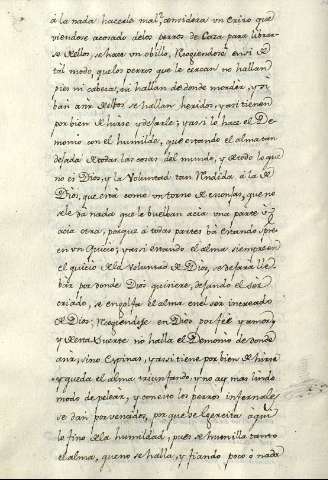 á la nada hacerle mal; considera vn Erizo que
viendose acosado delos perros de Caza para librar-
se dellos, se hace vn obillo, Recogiendose en si de
tal modo, que los perros que le cercan no hallan
pies ni cabeza, ni hallan de donde morder, y si
ban asir dellos se hallan heridos, y assi tienen
por bien de hirse y dejarle; y assi lo hace el De-
monio con el humilde, que estando el alma tan
desasda de todas las cosas del mundo, y de todo lo que
no es Dios, y la Voluntad tan Rendida á la de
Dios, que está como vn torno de monjas, que no
se le da nada que le buelban acia vna parte
acia otra, porque á todas partes bá estando siempre
en vn Quicio; y assi estando el alma siempre en
el quicio dela Voluntad de Dios, se dejará lle-
bar por donde Dios quisiere, dejando el ser
criado, se engolfa el alma en el ser increado
de Dios; Recogiendose en Dios por feè y amor,
y desta suerte no halla el Demonio de donde
asir, sino Espinas, y assi tiene por bien de hirse
y queda el alma triunfando, y no ay mas lindo
modo de pelear, y con esto los perros infernales
se dan por vencidos, por que se exercita aqui
lo fino dela humildad, pues se humilla tanto
el alma, que no se halla, y fiando poco ò nada